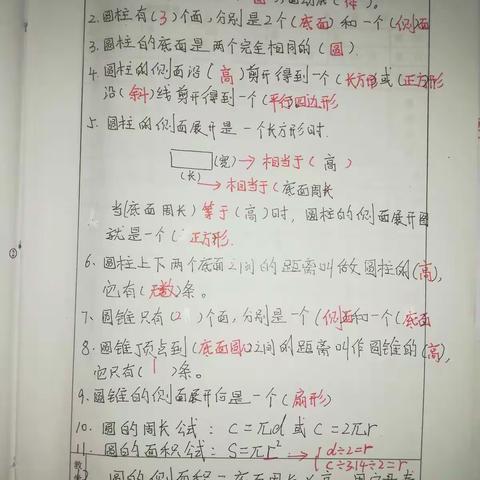 2.圆柱有(3)个面,分别是2个(底面)和一个(侧)面
3.圆柱的底面是两个完全相同的(圆).
4.圆柱的侧面沿(高)剪开得到一个(长方形)或(正方形
沿(斜)线剪开得到一个(平行四边形
5.圆柱的侧面展开是一个长方形时.
(宽)→相当于(高)
(长)
→相当于(底面周长
当(底面周长)等于(高)时,圆柱的侧面展开图
就是一个(正方形.
6、圆柱上下两个底面之间的距离叫做圆柱的(高),
它有(无数)条。
7、圆锥只有(2)个面,分别是一个(侧)面和一个(底面
8、圆锥顶点到(底面圆心)之间的距离叫作圆锥的(高),
它只有(1)条。
9.圆锥的侧面展开后是一个(扇形)
10.圆的周长公式:C=πd或C=2πr
11.圆的面积公式:S=πr²→{d÷2=r
C÷3.14÷2=r